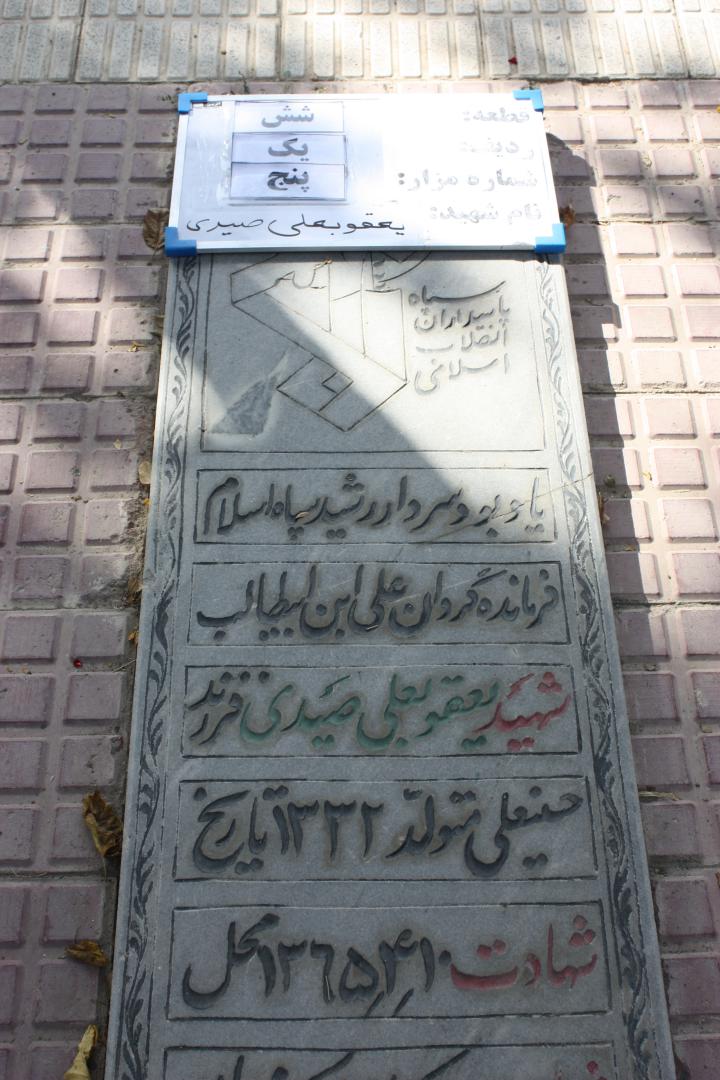 قطعه: شش
ردیف: یک
شماره مزار: پنج
نام شهید: یعقوبعلی صیدی
سپاه
پاسداران
انقلاب
اسلامی
یادبود سردار رشید سپاه اسلام
فرمانده گردان علی ابن ابیطالب
شهید یعقوبعلی صیدی فرزند
حسینعلی متولد ۱۳۳۲ تاریخ
شهادت ۱۳۶۵/۴/۱۰ محل